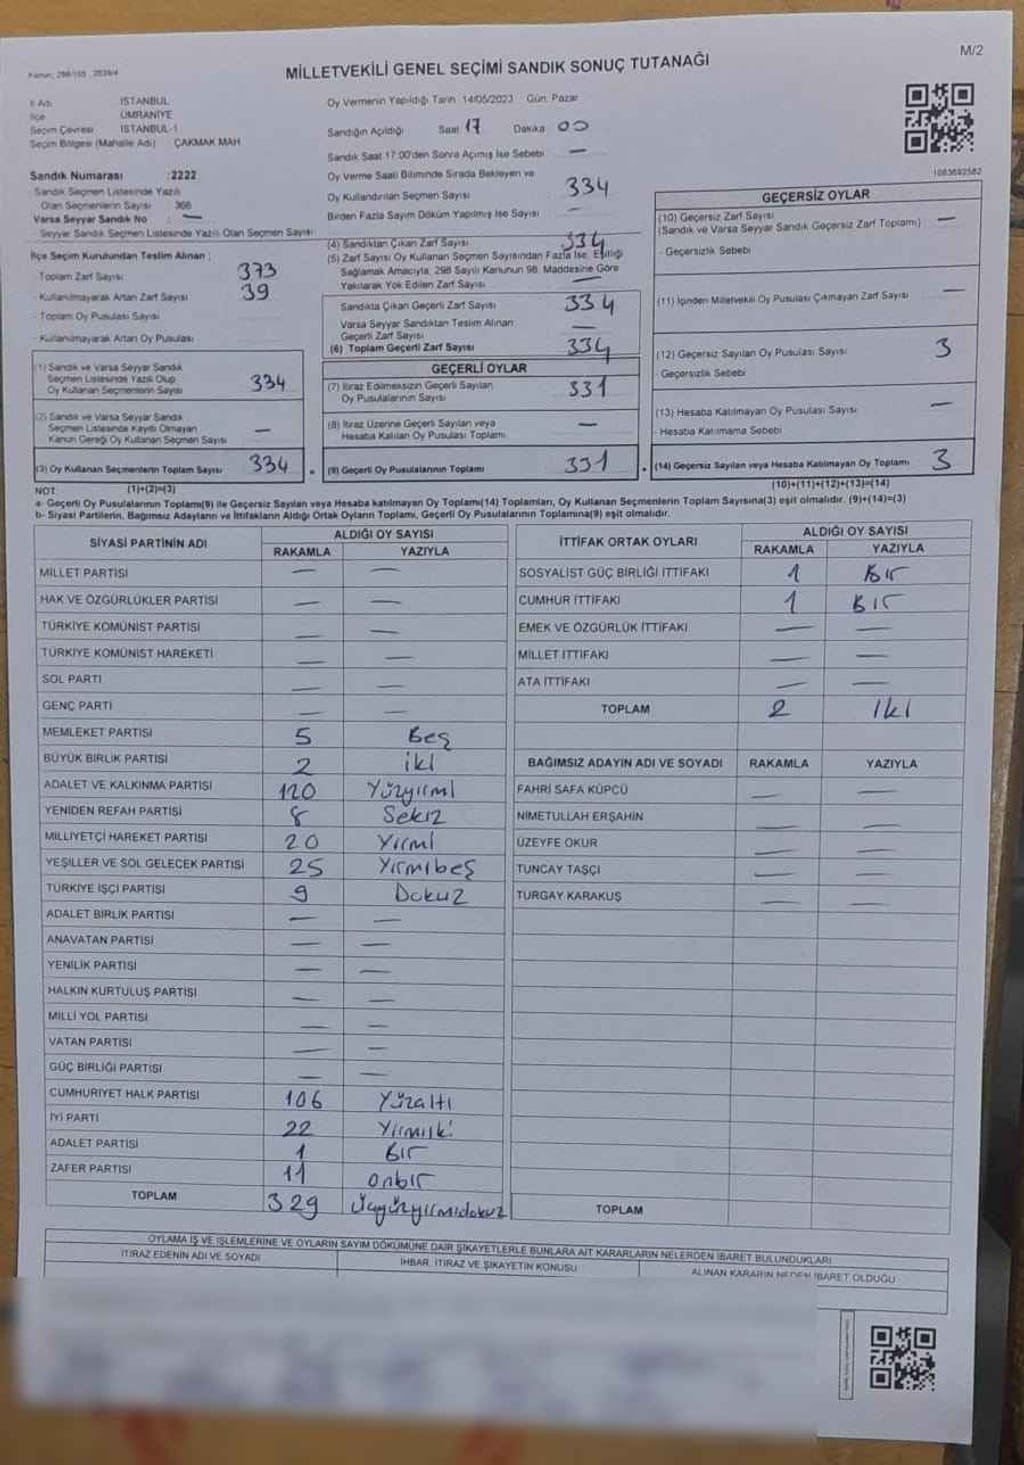 M/2
Kanun; 298/105 , 2839/4
MİLLETVEKİLİ GENEL SEÇİMİ SANDIK SONUÇ TUTANAĞI
İl Adı İSTANBUL
İlçe ÜMRANİYE
Seçim Çevresi İSTANBUL-1
Seçim Bölgesi (Mahalle Adı) ÇAKMAK MAH
Oy Vermenin Yapıldığı Tarih 14/05/2023 Gün: Pazar
Sandığın Açıldığı Saat 17 Dakika 00
Sandık Saat 17:00'den Sonra Açılmış İse Sebebi —
Sandık Numarası :2222
Sandık Seçmen Listesinde Yazılı
Olan Seçmenlerin Sayısı 366
Varsa Seyyar Sandık No : —
Seyyar Sandık Seçmen Listesinde Yazılı Olan Seçmen Sayısı
Oy Verme Saati Bitiminde Sırada Bekleyen ve
Oy Kullandırılan Seçmen Sayısı 334
Birden Fazla Sayım Döküm Yapılmış İse Sayısı —
1083692582
İlçe Seçim Kurulundan Teslim Alınan ;
- Toplam Zarf Sayısı 373
- Kullanılmayarak Artan Zarf Sayısı 39
- Toplam Oy Pusulası Sayısı
- Kullanılmayarak Artan Oy Pusulası
(1) Sandık ve Varsa Seyyar Sandık
Seçmen Listesinde Yazılı Olup
Oy Kullanan Seçmenlerin Sayısı 334
(2) Sandık ve Varsa Seyyar Sandık
Seçmen Listesinde Kayıtlı Olmayan
Kanun Gereği Oy Kullanan Seçmen Sayısı —
(3) Oy Kullanan Seçmenlerin Toplam Sayısı 334
(1)+(2)=(3)
(4) Sandıktan Çıkan Zarf Sayısı 334
(5) Zarf Sayısı Oy Kullanan Seçmen Sayısından Fazla İse, Eşitliği
Sağlamak Amacıyla, 298 Sayılı Kanunun 98. Maddesine Göre
Yakılarak Yok Edilen Zarf Sayısı —
Sandıkta Çıkan Geçerli Zarf Sayısı 334
Varsa Seyyar Sandıktan Teslim Alınan
Geçerli Zarf Sayısı —
(6) Toplam Geçerli Zarf Sayısı 334
GEÇERLİ OYLAR
(7) İtiraz Edilmeksizin Geçerli Sayılan
Oy Pusulalarının Sayısı 331
(8) İtiraz Üzerine Geçerli Sayılan veya
Hesaba Katılan Oy Pusulası Toplamı —
(9) Geçerli Oy Pusulalarının Toplamı 331
GEÇERSİZ OYLAR
(10) Geçersiz Zarf Sayısı
(Sandık ve Varsa Seyyar Sandık Geçersiz Zarf Toplamı) —
- Geçersizlik Sebebi
(11) İçinden Milletvekili Oy Pusulası Çıkmayan Zarf Sayısı —
(12) Geçersiz Sayılan Oy Pusulası Sayısı 3
- Geçersizlik Sebebi
(13) Hesaba Katılmayan Oy Pusulası Sayısı —
- Hesaba Katılmama Sebebi
(14) Geçersiz Sayılan veya Hesaba Katılmayan Oy Toplamı 3
(10)+(11)+(12)+(13)=(14)
NOT
a- Geçerli Oy Pusulalarının Toplamı(9) ile Geçersiz Sayılan veya Hesaba katılmayan Oy Toplamı(14) Toplamları, Oy Kullanan Seçmenlerin Toplam Sayısına(3) eşit olmalıdır. (9)+(14)=(3)
b- Siyasi Partilerin, Bağımsız Adayların ve İttifakların Aldığı Ortak Oyların Toplamı, Geçerli Oy Pusulalarının Toplamına(9) eşit olmalıdır.
SİYASİ PARTİNİN ADI ALDIĞI OY SAYISI
RAKAMLA YAZIYLA
MİLLET PARTİSİ — —
HAK VE ÖZGÜRLÜKLER PARTİSİ — —
TÜRKİYE KOMÜNİST PARTİSİ — —
TÜRKİYE KOMÜNİST HAREKETİ — —
SOL PARTİ — —
GENÇ PARTİ — —
MEMLEKET PARTİSİ 5 Beş
BÜYÜK BİRLİK PARTİSİ 2 iki
ADALET VE KALKINMA PARTİSİ 120 Yüzyirmi
YENİDEN REFAH PARTİSİ 8 Sekiz
MİLLİYETÇİ HAREKET PARTİSİ 20 Yirmi
YEŞİLLER VE SOL GELECEK PARTİSİ 25 Yirmibeş
TÜRKİYE İŞÇİ PARTİSİ 9 Dokuz
ADALET BİRLİK PARTİSİ — —
ANAVATAN PARTİSİ — —
YENİLİK PARTİSİ — —
HALKIN KURTULUŞ PARTİSİ — —
MİLLİ YOL PARTİSİ — —
VATAN PARTİSİ — —
GÜÇ BİRLİĞİ PARTİSİ — —
CUMHURİYET HALK PARTİSİ 106 Yüzaltı
İYİ PARTİ 22 Yirmiiki
ADALET PARTİSİ 1 Bir
ZAFER PARTİSİ 11 onbir
TOPLAM 329 üçyüzyirmidokuz
İTTİFAK ORTAK OYLARI ALDIĞI OY SAYISI
RAKAMLA YAZIYLA
SOSYALİST GÜÇ BİRLİĞİ İTTİFAKI 1 Bir
CUMHUR İTTİFAKI 1 Bir
EMEK VE ÖZGÜRLÜK İTTİFAKI — —
MİLLET İTTİFAKI — —
ATA İTTİFAKI — —
TOPLAM 2 İki
BAĞIMSIZ ADAYIN ADI VE SOYADI RAKAMLA YAZIYLA
FAHRİ SAFA KÜPCÜ — —
NİMETULLAH ERŞAHİN — —
ÜZEYFE OKUR — —
TUNCAY TAŞÇI — —
TURGAY KARAKUŞ — —
TOPLAM
OYLAMA İŞ VE İŞLEMLERİNE VE OYLARIN SAYIM DÖKÜMÜNE DAİR ŞİKAYETLERLE BUNLARA AİT KARARLARIN NELERDEN İBARET BULUNDUKLARI
İTİRAZ EDENİN ADI VE SOYADI İHBAR, İTİRAZ VE ŞİKAYETİN KONUSU ALINAN KARARIN NEDEN İBARET OLDUĞU